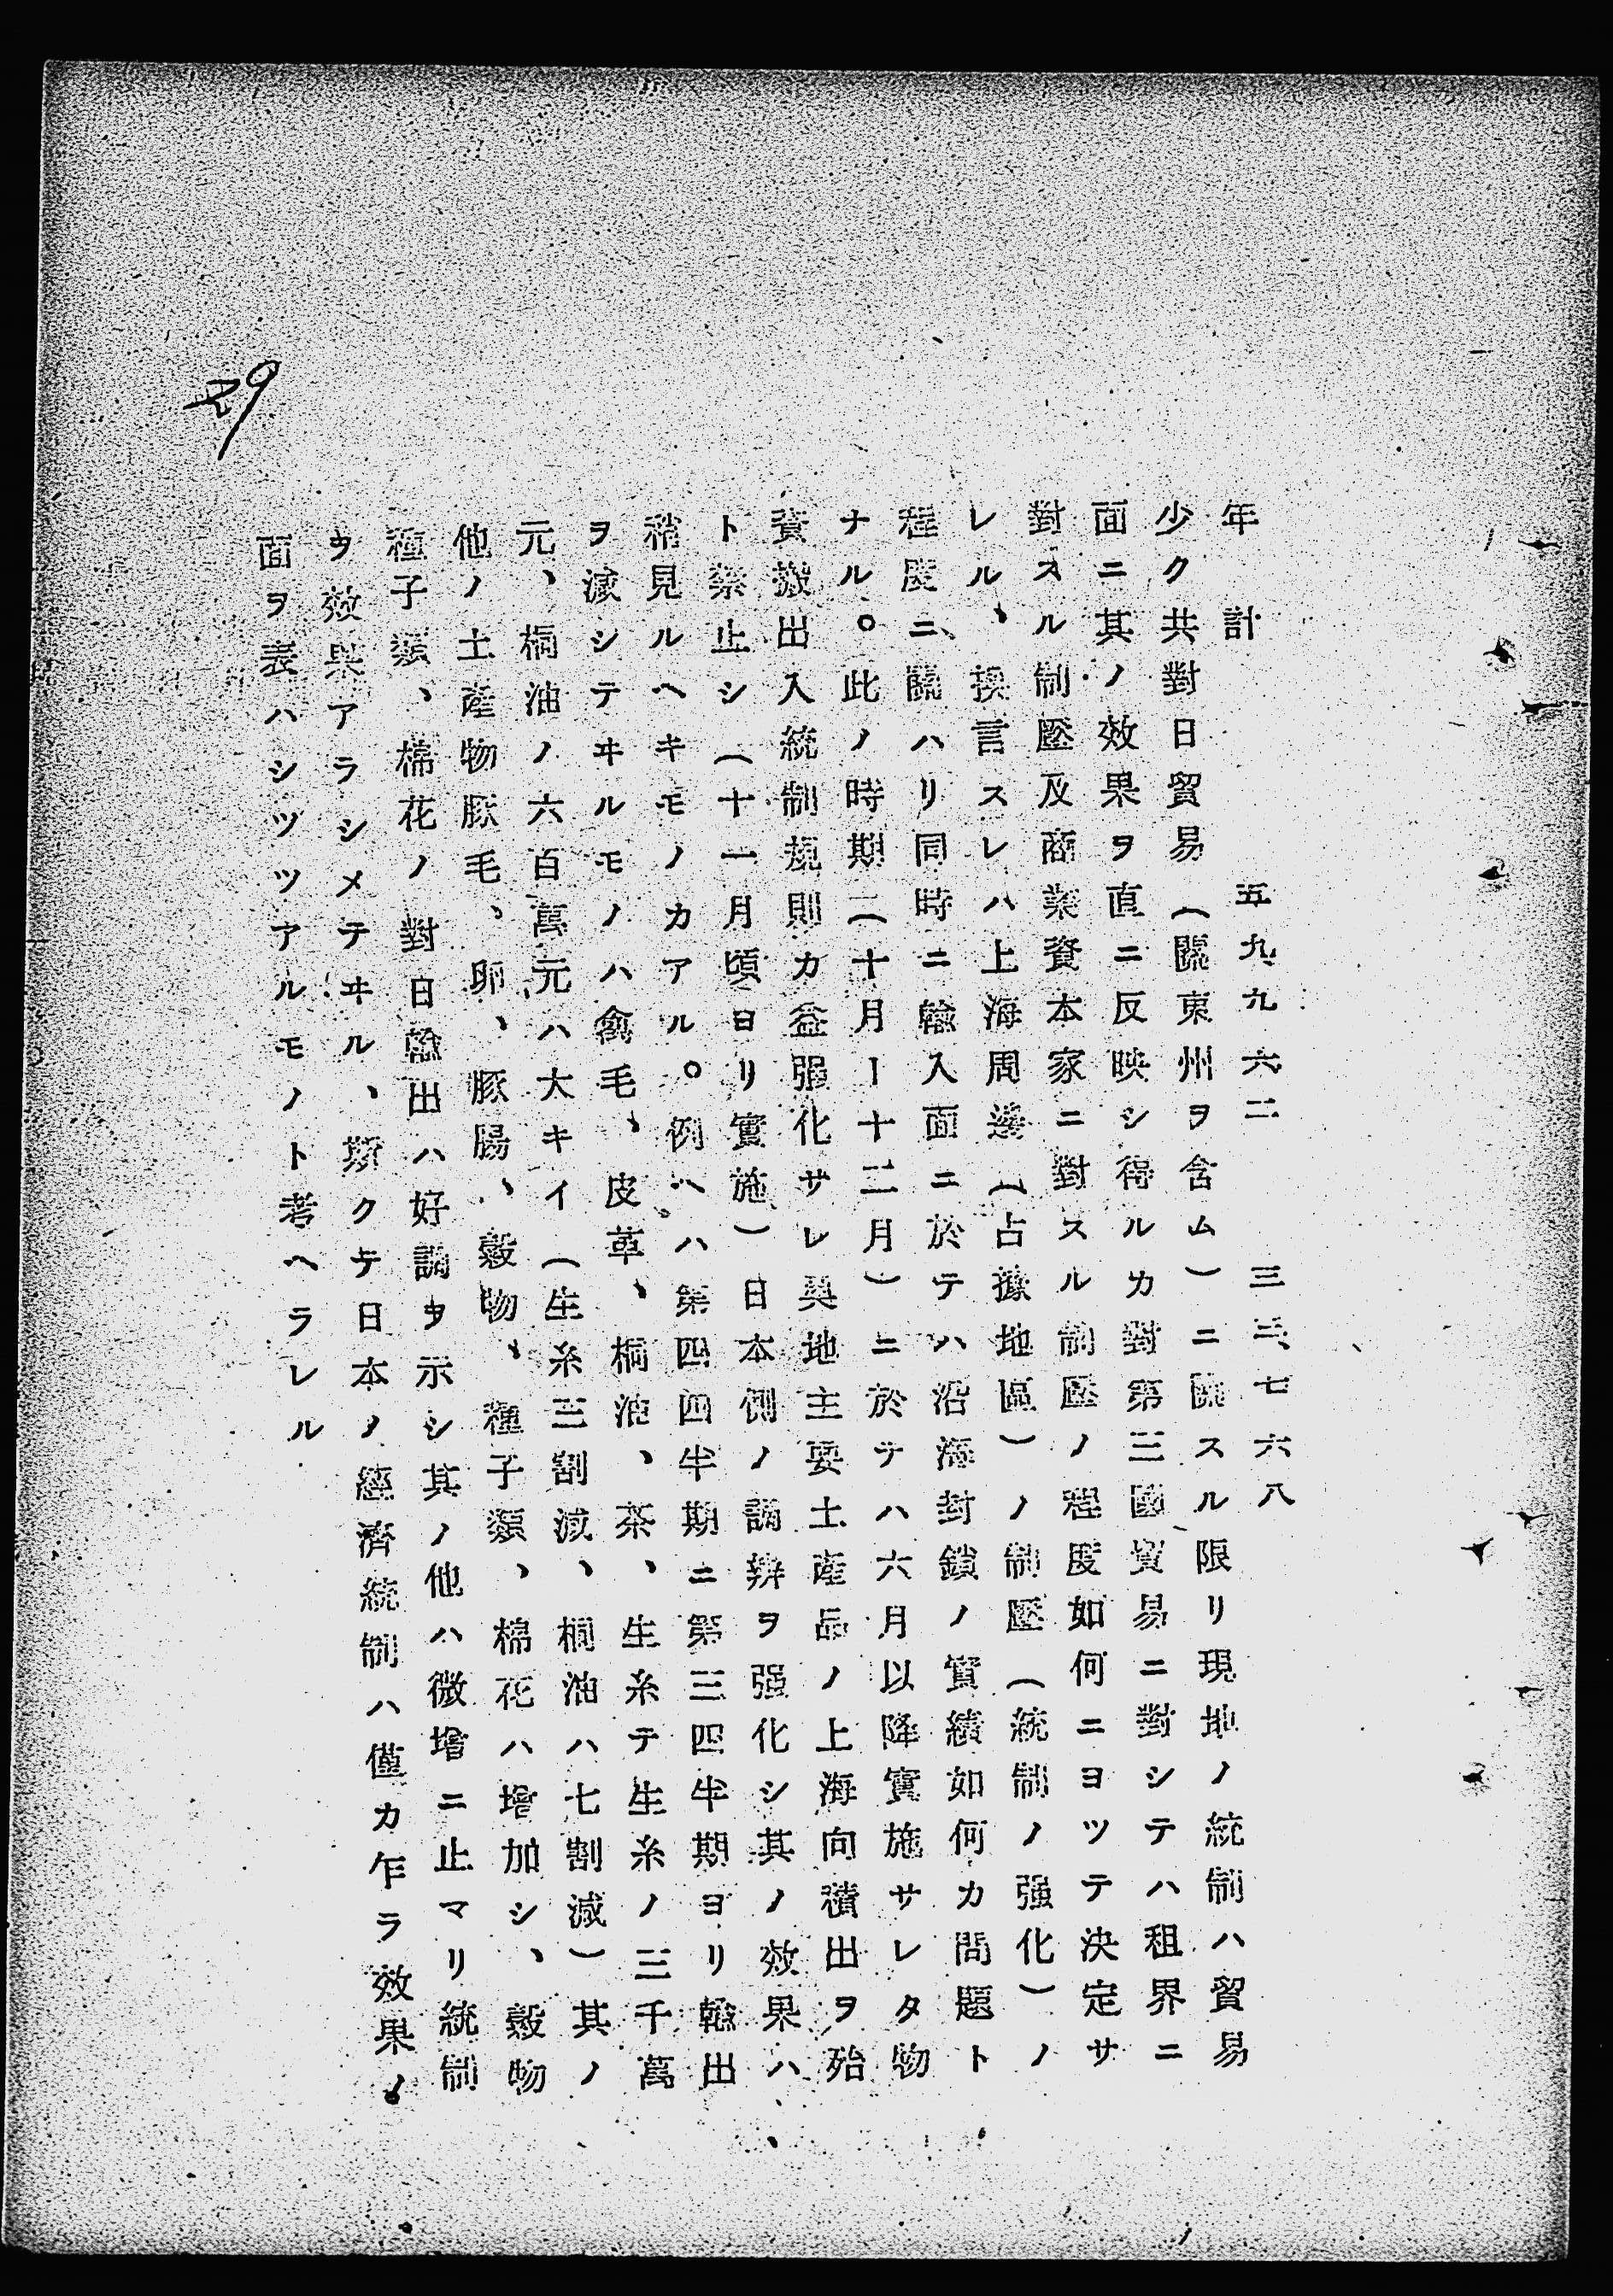 年 計 五九、九六二 三三、七六八
少ク共對日貿易（關東州ヲ含ム）ニ關スル限リ現地ノ統制ハ貿易
面ニ其ノ效果ヲ直ニ反映シ得ルカ對第三國貿易ニ對シテハ租界ニ
對スル制壓及商業資本家ニ對スル制壓ノ程度如何ニヨツテ決定サ
レル、換言スレハ上海周邊（占據地區）ノ制壓（統制ノ强化）ノ
程度ニ、關ハリ同時ニ輸入面ニ於テハ沿海封鎖ノ實績如何カ問題ト
ナル。此ノ時期（十月ー十二月）ニ於テハ六月以降實施サレタ物
資搬出入統制規則カ益强化サレ奥地主要土産品ノ上海向積出ヲ殆
ト禁止シ（十一月頃ヨリ實施）日本側ノ調辨ヲ强化シ其ノ效果ハ
稍見ルヘキモノカアル。例ヘハ第四四半期ニ第三四半期ヨリ輸出
ヲ減シテヰルモノハ禽毛、皮革、桐油、茶、生糸テ生糸ノ三千萬
元、桐油ノ六百萬元ハ大キイ（生糸三割減、桐油ハ七割減）其ノ
他ノ土産物豚毛、卵、豚腸、穀物、種子類、棉花ハ增加シ、穀物
種子類、棉花ノ對日輸出ハ好調ヲ示シ其ノ他ハ微增ニ止マリ統制
ヲ效果アラシメテヰル、斯クテ日本ノ經濟統制ハ僅カ乍ラ效果ノ
面ヲ表ハシツツアルモノト考ヘラレル
29